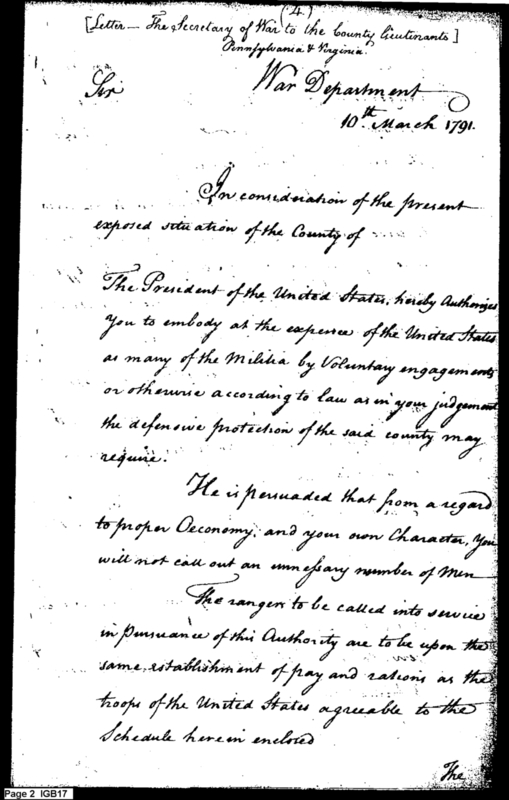 (4)
[Letter — The Secretary of War to the County Lieutenants]
Pennsylvania & Virginia
Sir
War Department
10th March 1791.
In consideration of the present
exposed situation of the County of
The President of the United States, hereby Authorizes
you to embody at the expence of the United States
as many of the Militia by Voluntary engagements
or otherwise according to law as in your judgement
the defensive protection of the said county may
require.
He is persuaded that from a regard
to proper Oeconomy, and your own Character, you
will not call out an unnessary number of Men
The rangers to be called into service
in pursuance of this Authority are to be upon the
same establishment of pay and rations as the
troops of the United States agreeable to the
Schedule herein enclosed
The
Page 2 IGB17